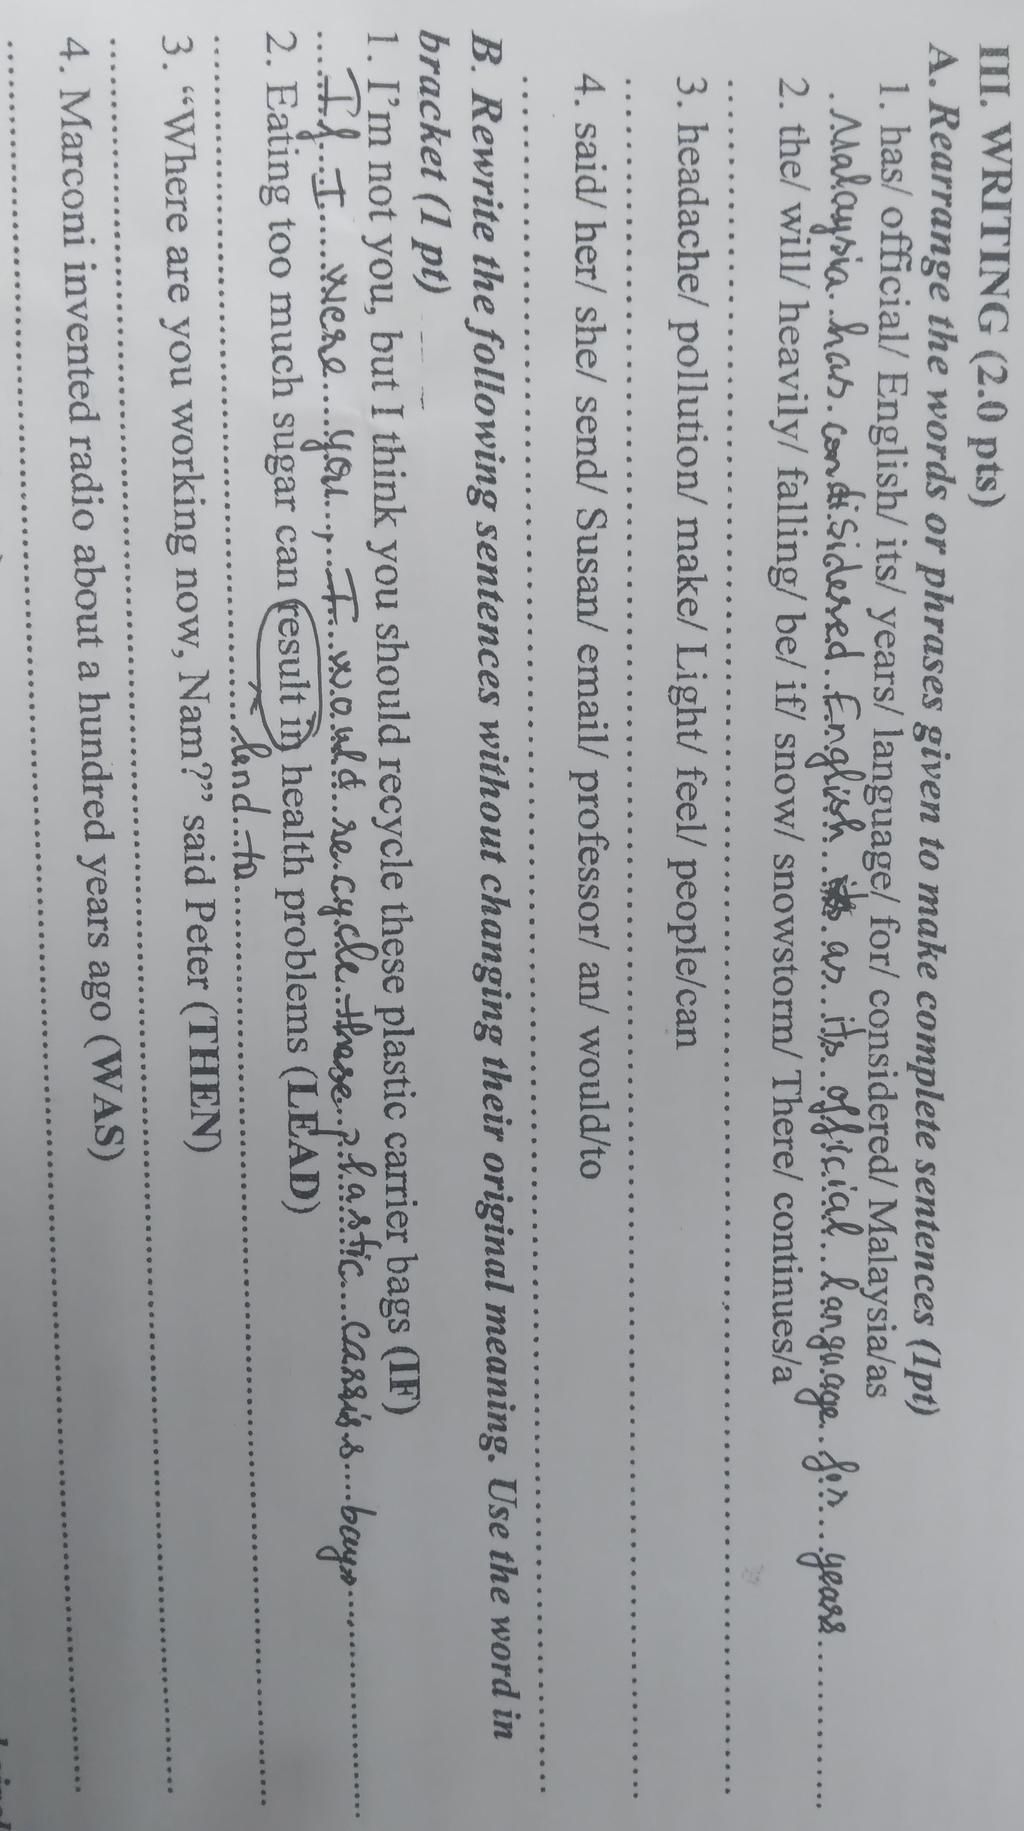 III. WRITING (2.0 pts)
A. Rearrange the words or phrases given to make complete sentences (1pt)
1. has/ official/ English/ its/ years/ language/ for/ considered/ Malaysia/as
Malaysia has considered English as its official language for years
2. the/ will/ heavily/ falling/ be/ if/ snow/ snowstorm/ There/ continues/a
3. headache/ pollution/ make/ Light/ feel/ people/can
4. said/ her/ she/ send/ Susan/ email/ professor/ an/ would/to
B. Rewrite the following sentences without changing their original meaning. Use the word in
bracket (1 pt)
1. I'm not you, but I think you should recycle these plastic carrier bags (IF)
If I were you, I would recycle these plastic carrier bags
2. Eating too much sugar can result in health problems (LEAD)
lend to
3. “Where are you working now, Nam?” said Peter (THEN)
4. Marconi invented radio about a hundred years ago (WAS)